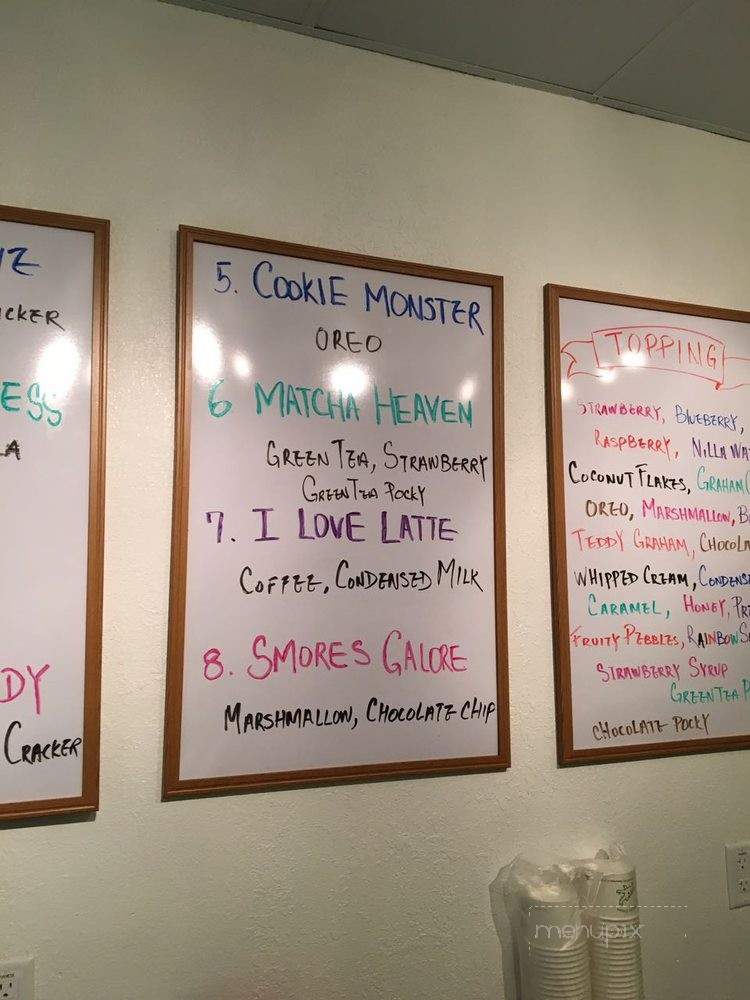 CRACKER
5. COOKIE MONSTER
OREO
6 MATCHA HEAVEN
GREEN TEA, STRAWBERRY
GREEN TEA POCKY
7. I LOVE LATTE
COFFEE, CONDENSED MILK
8. SMORES GALORE
MARSHMALLOW, CHOCOLATE CHIP
TOPPING
STRAWBERRY, BLUEBERRY,
RASPBERRY, NILLA
COCONUT FLAKES, GRAHAM
OREO, MARSHMALLOW,
TEDDY GRAHAM,
WHIPPED CREAM,
CARAMEL, HONEY,
FRUITY PEBBLES, RAINBOW
STRAWBERRY SYRUP
GREEN TEA
CHOCOLATE POCKY
menupix